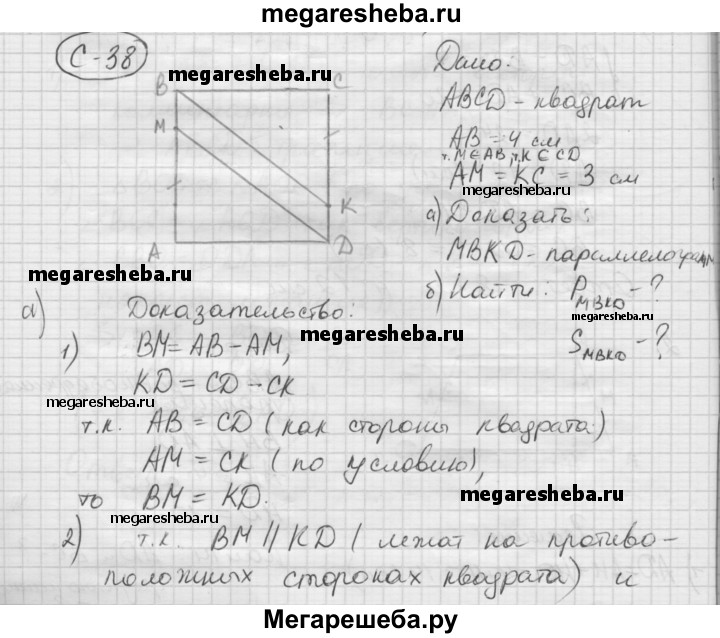 megaresheba.ru
С-38
megaresheba.ru
B
C
M
K
A
D
Дано:
ABCD - квадрат
AB = 4 см
т.M∈AB, т.K∈CD
AM = KC = 3 см
megaresheba.ru
а) Доказать:
MBKD - параллелограмм
б) Найти: P MBKD - ?
megaresheba.ru
S MBKD - ?
megaresheba.ru
а) Доказательство:
megaresheba.ru
1) BM = AB - AM,
KD = CD - CK
megaresheba.ru
т.к. AB = CD (как стороны квадрата)
AM = CK (по условию),
то BM = KD.
megaresheba.ru
megaresheba.ru
2) т.к. BM || KD (лежат на противо-
положных сторонах квадрата) и
Мегарешеба.ру